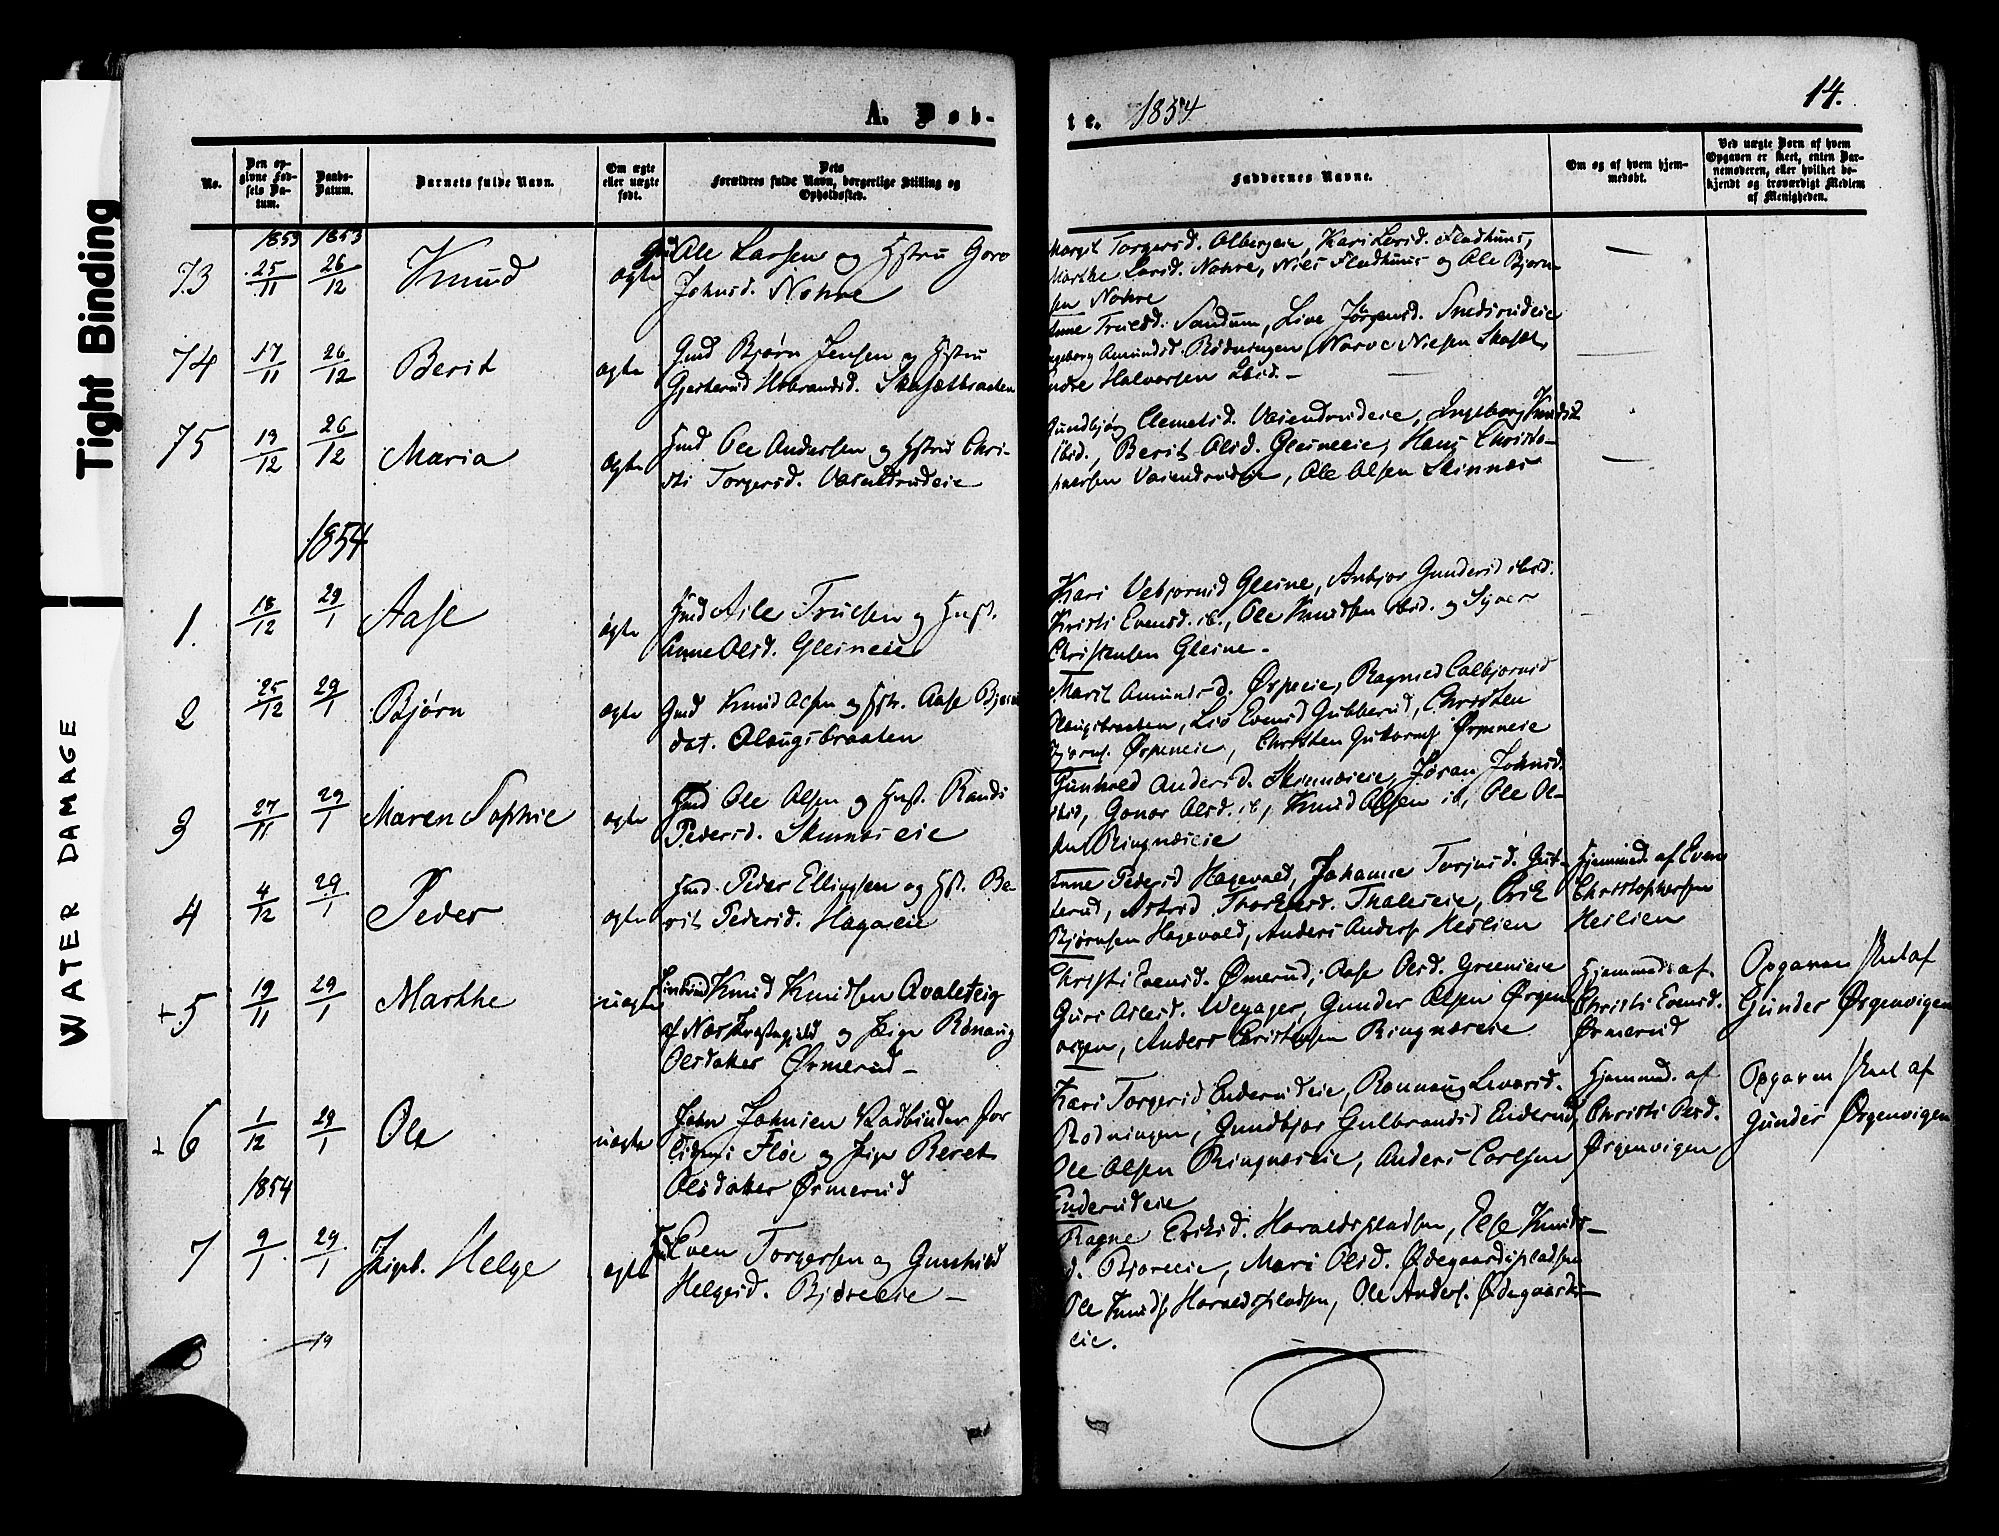 Tight Binding
WATER DAMAGE
A. Døb-
te. 1854
14.
No.
Den op-
givne Fød-
sels Da-
tum.
Daabs-
Datum.
Barnets fulde Navn.
Om ægte
eller uægte
født.
Dets
Forældres fulde Navn, borgerlige Stilling og
Opholdssted.
Faddernes Navne.
Om og af hvem hjem-
medøbt.
Ved uægte Børn af hvem
Opgaven er skeet, enten Bar-
nemoderen, eller hvilket be-
kjendt og troværdigt Medlem
af Menigheden.
1853 1853
73 25/11 26/12 Knud ægte Ole Larsen og Hstru Goro
Johnsd. Nohre
Margit Torgersd. Albergeie, Kari Larsd. Fladhuus,
Marthe Larsd. Nohre, Niels Fladhuus og Ole Bjørn-
sen Nohre
74 17/11 26/12 Berit ægte Gmd Bjørn Jensen og Hstru
Gjertrud Hobrandsd. Skasætbraaten
Anne Truesd. Sandum, Live Jørgensd. Snedsrudeie
Ingeborg Amundsd. Rødningen, Narve Nielsen Skasæt,
Endre Halvorsen Ibid.
75 13/12 26/12 Maria ægte Hmd Ole Andersen og Hstru Chri-
sti Torgersd. Væsendrudeie
Gundbjøg Clemetsd. Væsendrudeie, Ingeborg Knudsd.
Ibid., Berit Olsd. Gleineeie, Hans Christo-
phersen Væsendrudeie, Ole Olsen Skinnes
1854
1. 18/12 29/1 Aase ægte Hmd Atle Truesen og Hust.
Anne Olsd. Gleineeie
Kari Vebjørnsd Gleine, Anbjør Gundersd ibid.
Kristi Evensd. ib., Ole Knudsen ibid. og Syver
Christensen Gleine.
2 25/12 29/1 Bjørn ægte Gmd Knud Olsen og Hstr. Aase Bjørns
dat. Olaugsbraaten
Marit Amundsd. Ørpeneie, Ragnild Colbjørnsd
Olaugsbraaten, Liv Evensd Gubberud, Christen
Bjørns. Ørpeneie, Christen Guttorms. Ørpeneie
3 27/11 29/1 Maren Sophie ægte Hmd Ole Olsen og Hust. Randi
Pedersd. Skinneseie
Gunhild Andersd. Skinneseie, Jøran Johnsd.
ibid, Gonor Olsd. ib, Knud Olsen ib, Ole Ol-
sen Ringnæseie
4 4/12 29/1 Peder ægte Hmd. Peder Ellingsen og Hst. Be-
rit Pedersd. Hagaeie
Anne Pedersd Hagevold, Johanne Torjusd. Gut-
terud, Astrid Thorkelsd. Thaleseie, Erik
Bjørnsen Hagevold, Anders Anders. Heslien
Hjemmed. af Even
Christophersen
Heslien
+5 19/11 29/1 Marthe uægte Knud Knudsen Avalsteig
af Næs Prestegjeld og Pige Rønaug
Olsdatter Ørmerud
Christi Evensd. Ørmerud, Aase Olsd. Greeneeie
Guri Aslesd. Wegager, Gunder Olsen Ørgen-
vigen, Anders Christensen Ringnæseie
Hjemmed. af
Christi Evensd.
Ørmerud
Opgaven skeet af
Gunder Ørgenvigen
+6 1/12 29/1 Ole uægte John Johnsen Radbinder for
Tiden i Fløe og Pige Beret
Olsdatter Ørmerud
Kari Torgersd Enderudeie, Rønnaug Levorsd.
Rødningen, Gundbjør Gulbrandsd Enderud,
Ole Olsen Ringnæseie, Anders Carlsen
Enderudeie
Hjemmed. af
Christi Olsd.
Ørgenvigen
Opgaven skeet af
Gunder Ørgenvigen
1854
7 9/1 29/1 Helge ægte Even Torgersen og Gunhild
Helgesd. Bjøreeie
Ragne Eriksd. Haraldspladsen, Else Knuds-
d. Bjøreeie, Mari Olsd. Ødegaardspladsen
Ole Knuds. Haraldspladsen, Ole Anders. Ødegaards-
eie.
8 19